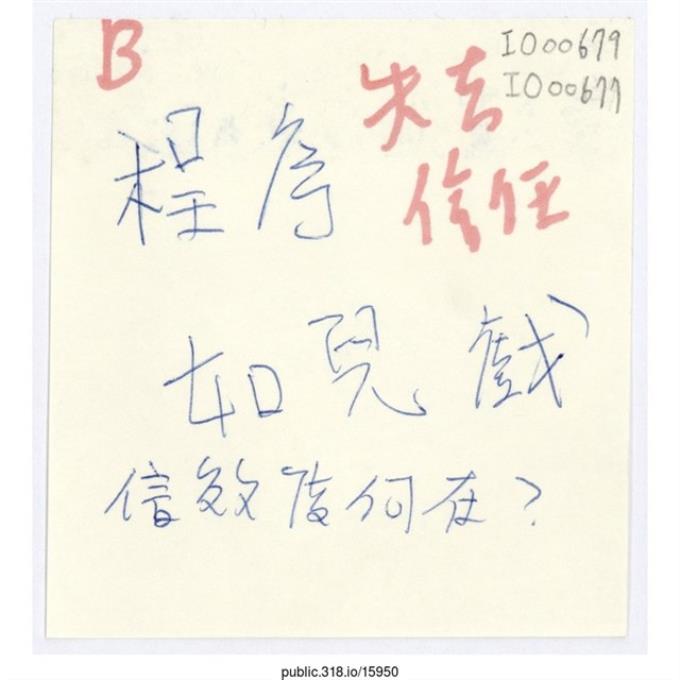 B
IO00679
IO00677
失去
信任
程序
如兒戲
信效度何在?
public.318.io/15950